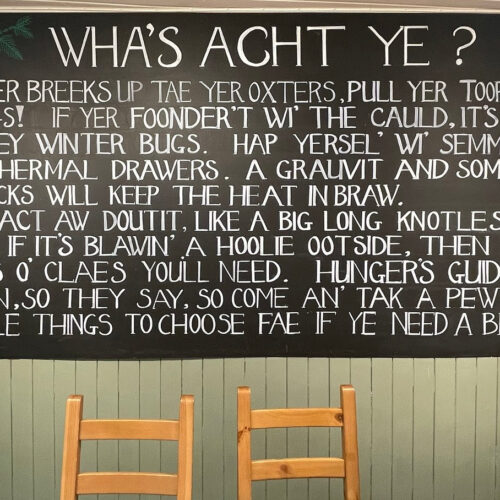 WHA'S ACHT YE ?
ER BREEKS UP TAE YER OXTERS, PULL YER TOOR
S! IF YER FOONDER'T WI' THE CAULD, IT'S
EY WINTER BUGS. HAP YERSEL' WI' SEMM
HERMAL DRAWERS. A GRAUVIT AND SOM
CKS WILL KEEP THE HEAT IN BRAW.
ACT AW DOUTIT, LIKE A BIG LONG KNOTLES
IF IT'S BLAWIN' A HOOLIE OOTSIDE, THEN
O' CLAES YOU'LL NEED. HUNGER'S GUID
N, SO THEY SAY, SO COME AN' TAK A PEW
LE THINGS TO CHOOSE FAE IF YE NEED A B